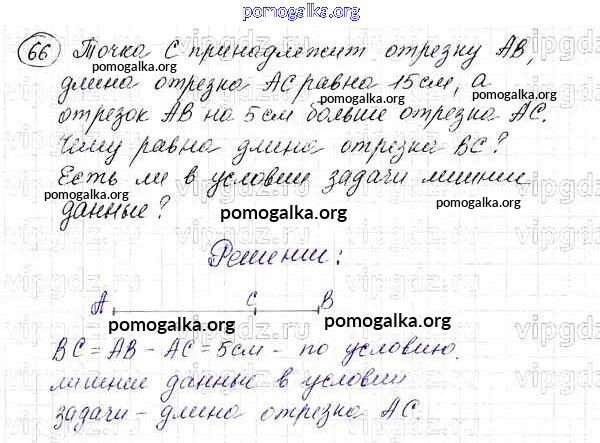 pomogalka.org
66 Точка С принадлежит отрезку АВ,
pomogalka.org
длина отрезка АС равна 15 см, а
pomogalka.org
pomogalka.org
отрезок АВ на 5 см больше отрезка АС.
Чему равна длина отрезка ВС?
pomogalka.org
pomogalka.org
Есть ли в условии задачи лишние
pomogalka.org
pomogalka.org
данные?
pomogalka.org
Решение:
А С В
pomogalka.org
pomogalka.org
ВС = АВ – АС = 5 см – по условию.
лишние данные в условии
задачи – длина отрезка АС.